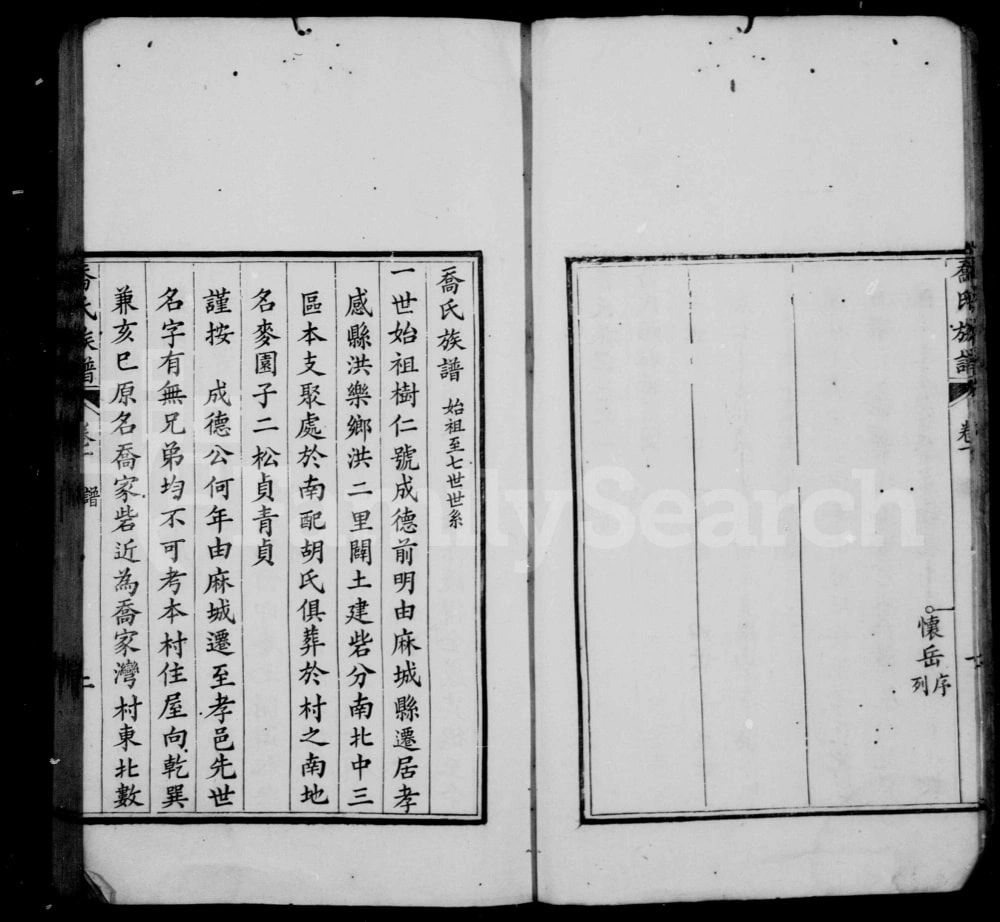 喬氏族譜
卷一
七
懷岳
序
列
喬氏族譜 始祖至七世世系
一世始祖樹仁號成德前明由麻城縣遷居孝
感縣洪樂鄉洪二里闢土建砦分南北中三
區本支聚處於南配胡氏俱葬於村之南地
名麥園子二松貞青貞
謹按 成德公何年由麻城遷至孝邑先世
名字有無兄弟均不可考本村住屋向乾巽
兼亥巳原名喬家砦近為喬家灣村東北數
喬氏族譜
卷一
譜
FamilySearch